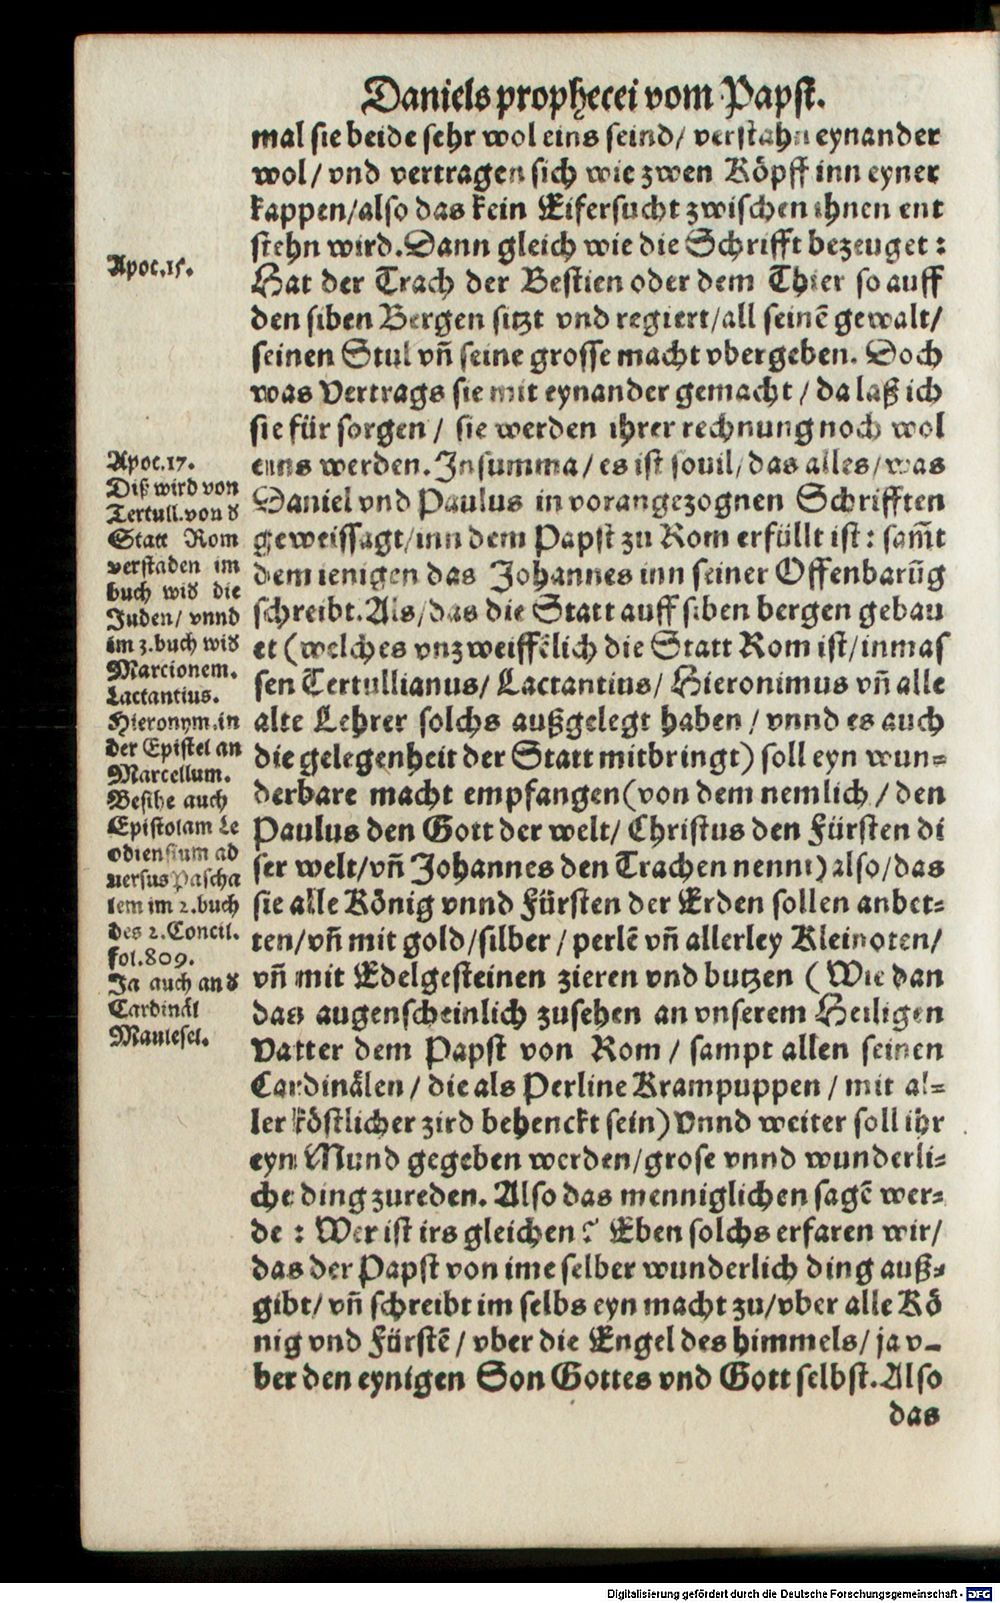 Daniels prophecei vom Papst.
mal sie beide sehr wol eins seind/ verstahn eynander
wol/ vnd vertragen sich wie zwen Köpff inn eyner
kappen/also das kein Eifersucht zwischen ihnen ent
stehn wird. Dann gleich wie die Schrifft bezeuget:
Hat der Trach der Bestien oder dem Thier so auff
den siben Bergen sitzt vnd regiert/all seinē gewalt/
seinen Stul vñ seine grosse macht vbergeben. Doch
was Vertrags sie mit eynander gemacht / da laß ich
sie für sorgen / sie werden ihrer rechnung noch wol
eins werden. In summa/ es ist souil/das alles/was
Daniel vnd Paulus in vorangezognen Schrifften
geweissagt/inn dem Papst zu Rom erfüllt ist: sam̃t
dem ienigen das Johannes inn seiner Offenbarūg
schreibt. Als/das die Statt auff siben bergen gebau
et (welches vnzweiffēlich die Statt Rom ist/inmas
sen Tertullianus/ Lactantius/ Hieronimus vñ alle
alte Lehrer solchs außgelegt haben / vnnd es auch
die gelegenheit der Statt mitbringt) soll eyn wun=
derbare macht empfangen(von dem nemlich / den
Paulus den Gott der welt/ Christus den Fürsten di
ser welt/vñ Johannes den Trachen nennt) also/das
sie alle König vnnd Fürsten der Erden sollen anbet=
ten/vñ mit gold/silber / perlē vñ allerley Kleinoten/
vñ mit Edelgesteinen zieren vnd butzen ( Wie dan
das augenscheinlich zusehen an vnserem Heiligen
Vatter dem Papst von Rom / sampt allen seinen
Cardinälen / die als Perline Krampuppen / mit al=
ler köstlicher zird behenckt sein) Vnnd weiter soll ihr
eyn Mund gegeben werden/grose vnnd wunderli=
che ding zureden. Also das menniglichen sagē wer=
de : Wer ist irs gleichen? Eben solchs erfaren wir/
das der Papst von ime selber wunderlich ding auß=
gibt/ vñ schreibt im selbs eyn macht zu/vber alle Kö
nig vnd Fürstē / vber die Engel des himmels/ ja v=
ber den eynigen Son Gottes vnd Gott selbst. Also
das
Apoc.15.
Apoc.17.
Diß wird von
Tertull.von d̕
Statt Rom
verstaden im
buch wid̕ die
Juden/ vnnd
im 3.buch wid̕
Marcionem.
Lactantius.
Hieronym.in
der Epistel an
Marcellum.
Besihe auch
Epistolam Le
odiensium ad
uersus Pascha
lem im 2.buch
des 2.Concil.
fol.809.
Ja auch and̕
Cardinäl
Maulesel.
Digitalisierung gefördert durch die Deutsche Forschungsgemeinschaft - DFG